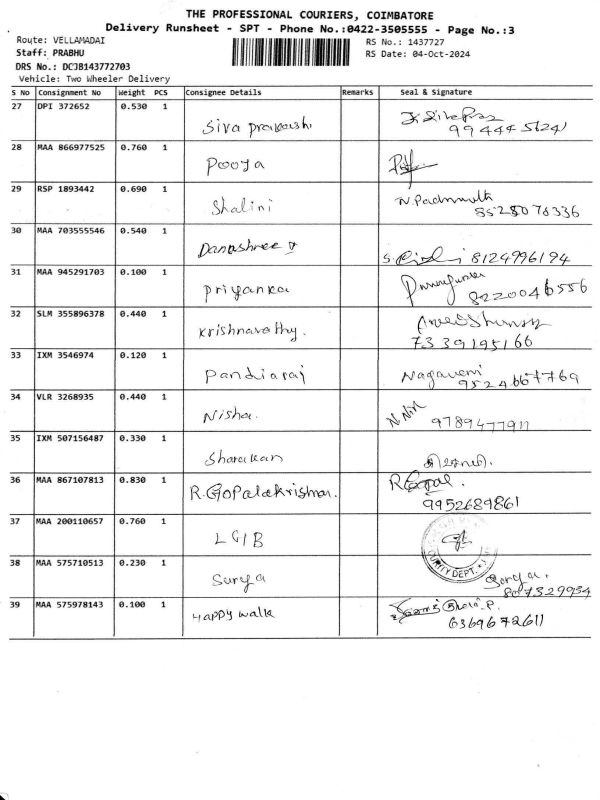 THE PROFESSIONAL COURIERS, COIMBATORE
Delivery Runsheet - SPT - Phone No.:0422-3505555 - Page No.:3
Route: VELLAMADAI
RS No.: 1437727
Staff: PRABHU
RS Date: 04-Oct-2024
DRS No.: DCJB143772703
Vehicle: Two Wheeler Delivery
S No Consignment No Weight PCS Consignee Details Remarks Seal & Signature
27 DPI 372652 0.530 1
Siva prakash
28 MAA 866977525 0.760 1
Pooja
29 RSP 1893442 0.690 1
Shalini N. Padmm
8525076336
30 MAA 703555546 0.540 1
Danashree
S. 8124996194
31 MAA 945291703 0.100 1
Priyanka
8220046556
32 SLM 355896378 0.440 1
Krishnavathy.
7339195166
33 IXM 3546974 0.120 1
Pandiaraj Nagaveni
9524667769
34 VLR 3268935 0.440 1
Nisha.
9789477911
35 IXM 507156487 0.330 1
Sharakan
36 MAA 867107813 0.830 1
R. Gopalakrishnan. R. Gopal.
9952689861
37 MAA 200110657 0.760 1
LGIB
DEPT.
38 MAA 575710513 0.230 1
Surya Surya.
39 MAA 575978143 0.100 1
Happy walk
6369672611